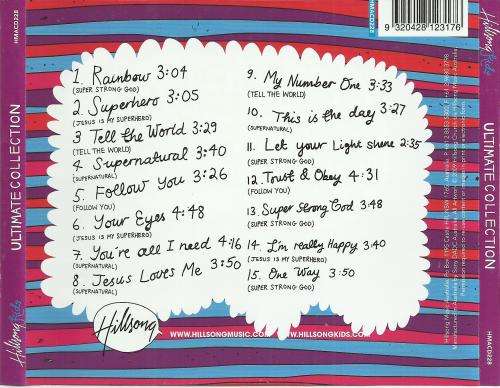 HMACD228
Hillsong Kids
ULTIMATE COLLECTION
HMACD228
9 320428 123176
1. Rainbow 3:04
(SUPER STRONG GOD)
2. Superhero 3:05
(JESUS IS MY SUPERHERO)
3 Tell the World 3:29
(TELL THE WORLD)
4. Supernatural 3:40
(SUPERNATURAL)
5. Follow You 3:26
(FOLLOW YOU)
6. Your Eyes 4:48
(JESUS IS MY SUPERHERO)
7. You're all I need 4:16
(SUPERNATURAL)
8. Jesus Loves Me 3:50
(SUPERNATURAL)
9. My Number One 3:33
(TELL THE WORLD)
10. This is the day 3:27
(SUPERNATURAL)
11. Let your Light shine 2:35
(SUPER STRONG GOD)
12. Trust & Obey 4:31
(FOLLOW YOU)
13. Super Strong God 3:48
(SUPER STRONG GOD)
14. I'm really Happy 3:40
(JESUS IS MY SUPERHERO)
15. One Way 3:50
(SUPER STRONG GOD)
Hillsong
WWW.HILLSONGMUSIC.COM
WWW.HILLSONGKIDS.COM
Hillsong Kids
ULTIMATE COLLECTION
HMACD228